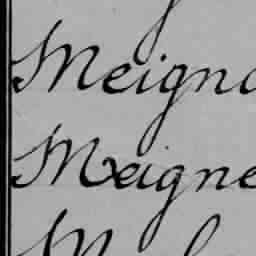 Meigna
Meigne